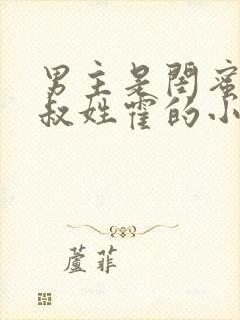 男主是闺蜜
叔姓霍的小
蘆菲